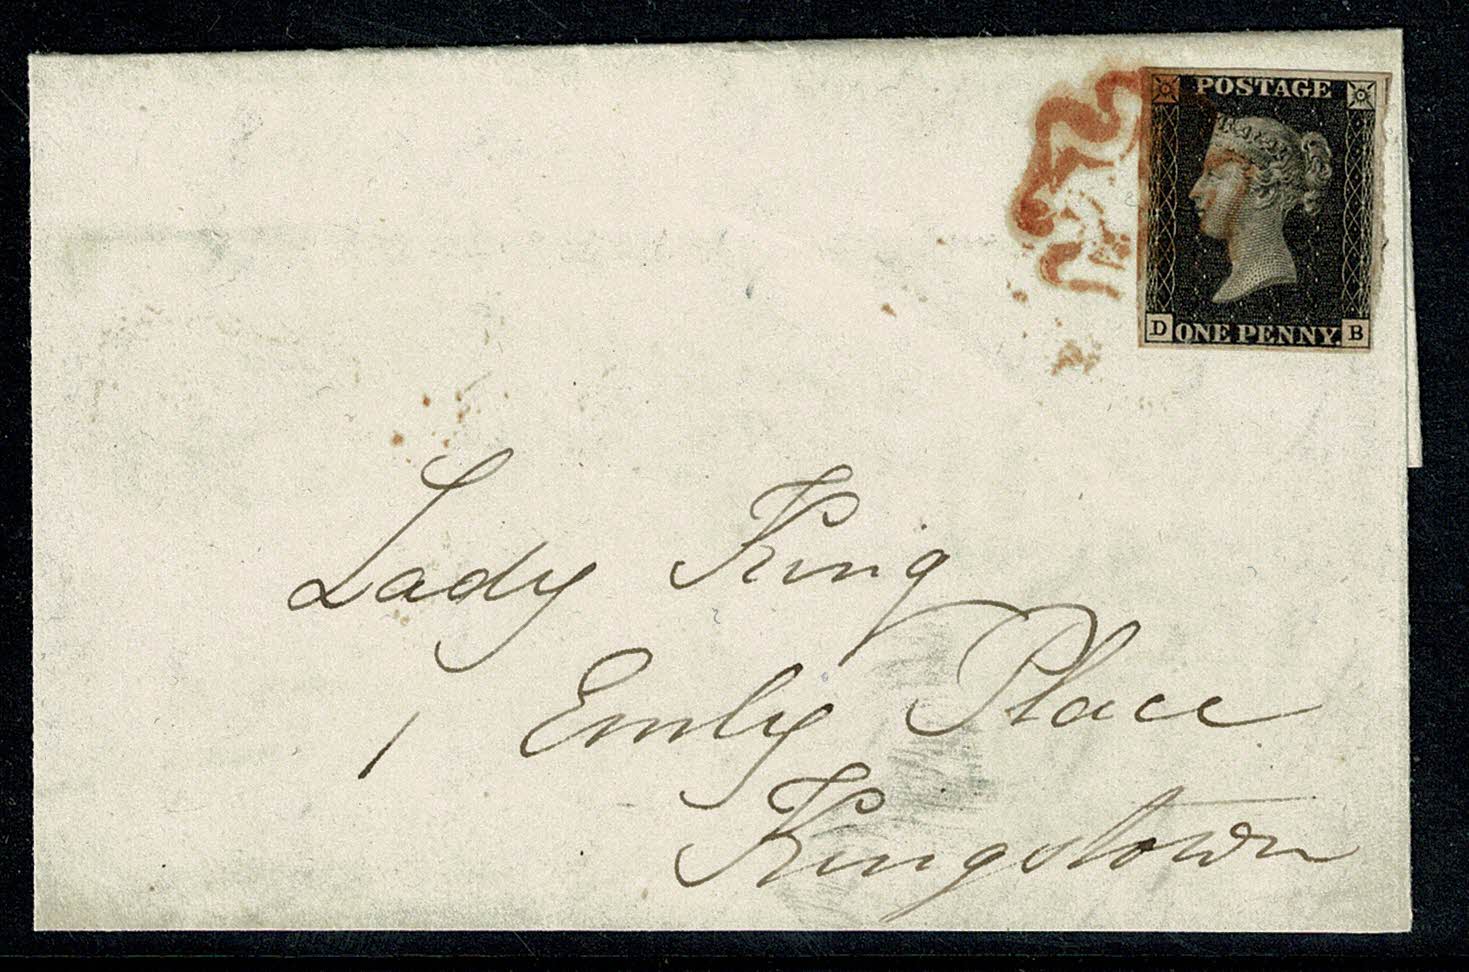 POSTAGE
D ONE PENNY. B
Lady King
1 Emly Place
Kingstown